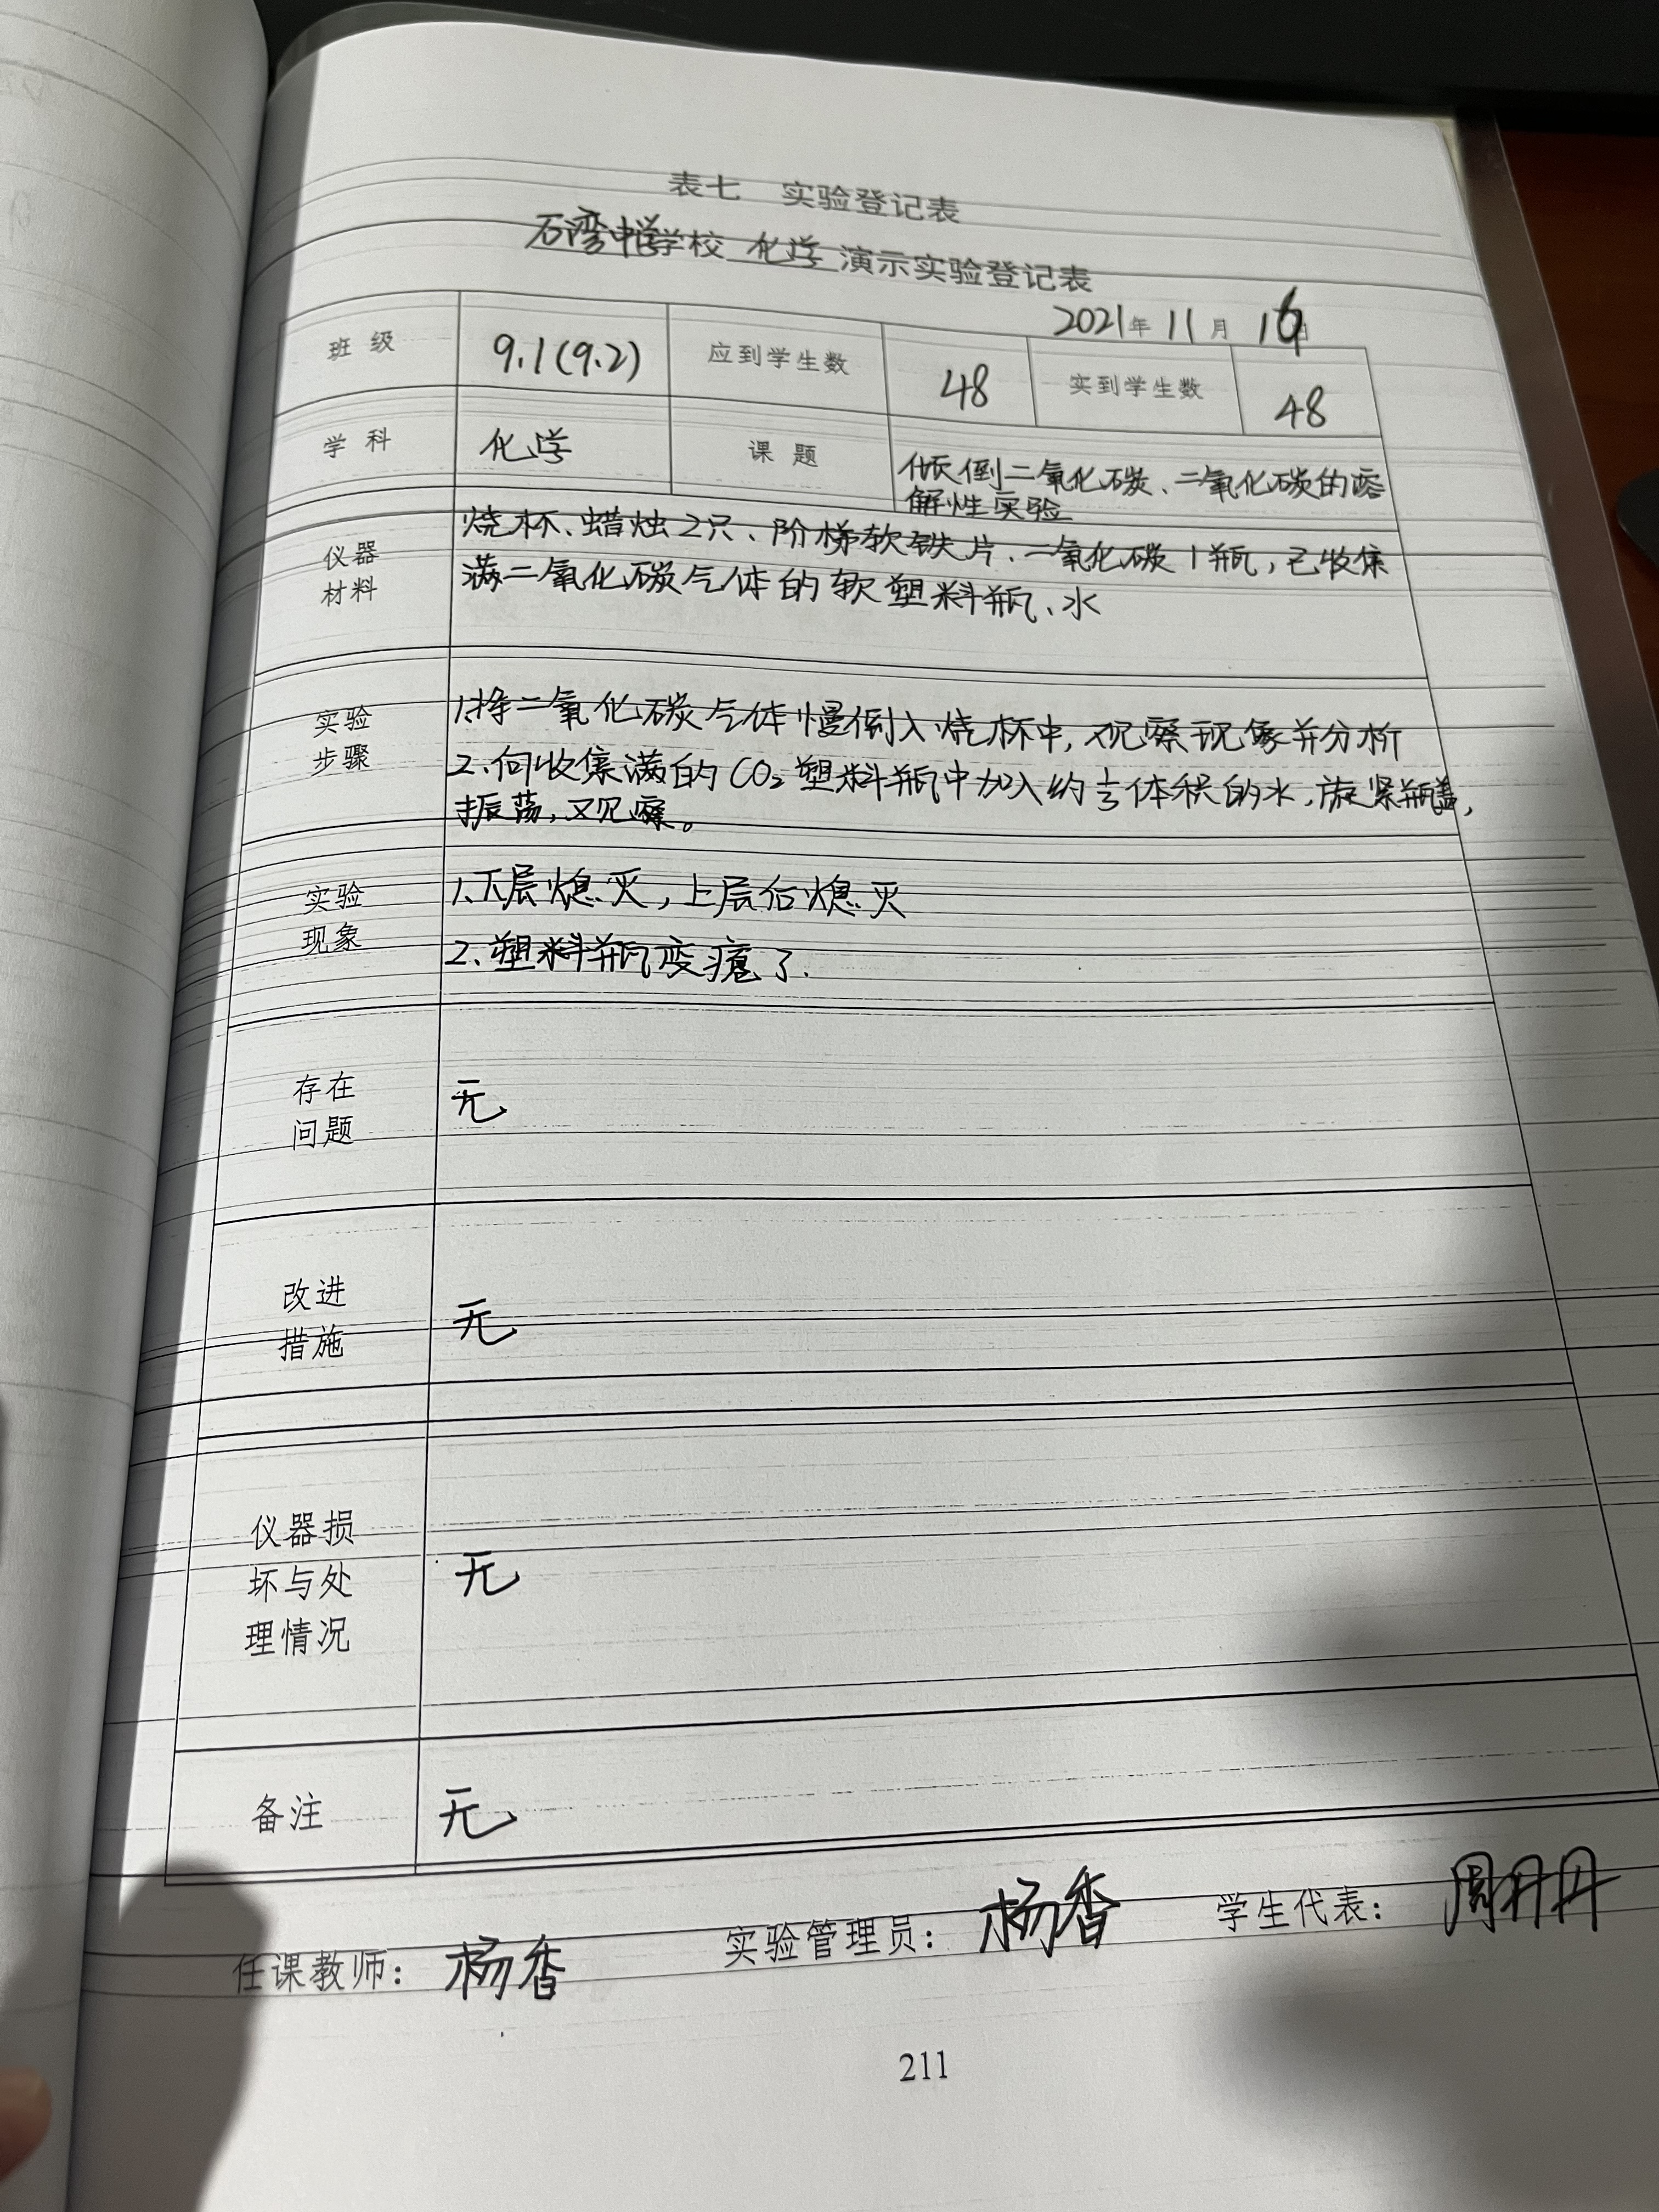 表七 实验登记表
石湾中学学校 化学 演示实验登记表
2021年 11月 16日
班 级 9.1(9.2) 应到学生数 48 实到学生数 48
学 科 化学 课 题 倾倒二氧化碳、二氧化碳的溶
解性实验
仪器
材料
烧杯、蜡烛2只、阶梯软铁片、二氧化碳1瓶,已收集
满二氧化碳气体的软塑料瓶、水
实验
步骤
1.将二氧化碳气体慢倒入烧杯中,观察现象并分析
2.向收集满的CO₂塑料瓶中加入约⅓体积的水,旋紧瓶盖,
振荡,观察。
实验
现象
1.下层熄灭,上层后熄灭
2.塑料瓶变瘪了.
存在
问题
无
改进
措施
无
仪器损
坏与处
理情况
无
备注 无
任课教师: 杨香 实验管理员: 杨香 学生代表: 周丹丹
211